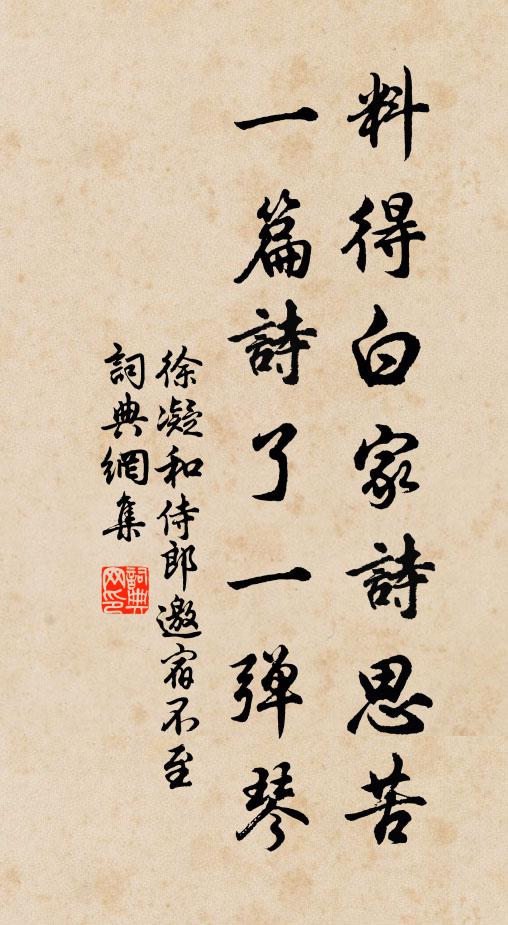 料得白家詩思苦
一篇詩了一弹琴
徐凝和侍郎邀宿不至
詞典網集
詞典网印